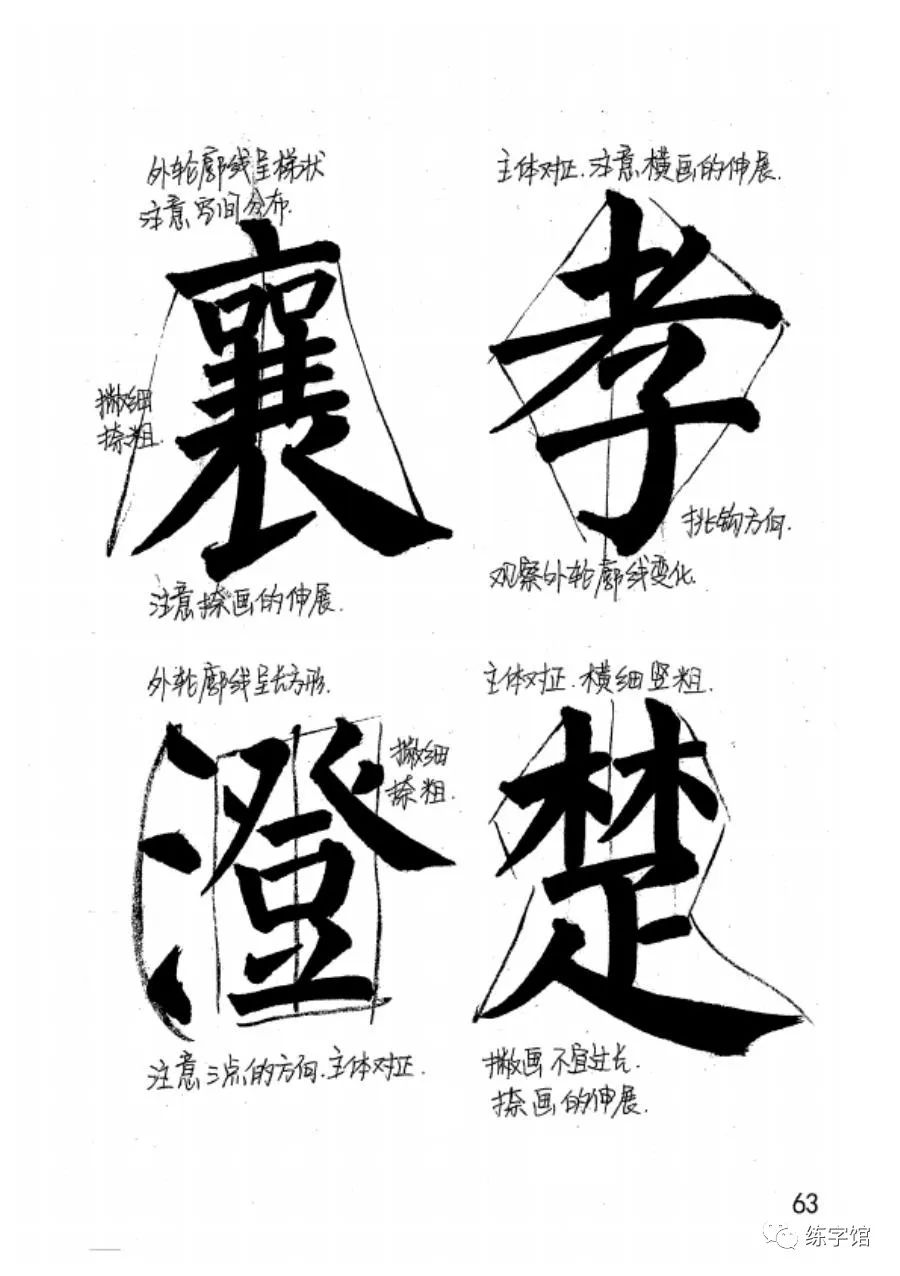 外轮廓线呈梯状
注意空间分布.
襄
撇细
捺粗.
注意捺画的伸展.
主体对正.注意横画的伸展.
孝
挑钩方向.
观察外轮廓线变化.
外轮廓线呈长方形.
澄
撇细
捺粗.
注意三点的方向.主体对正.
主体对正.横细竖粗.
楚
撇画不宜过长.
捺画的伸展.
63
练字馆